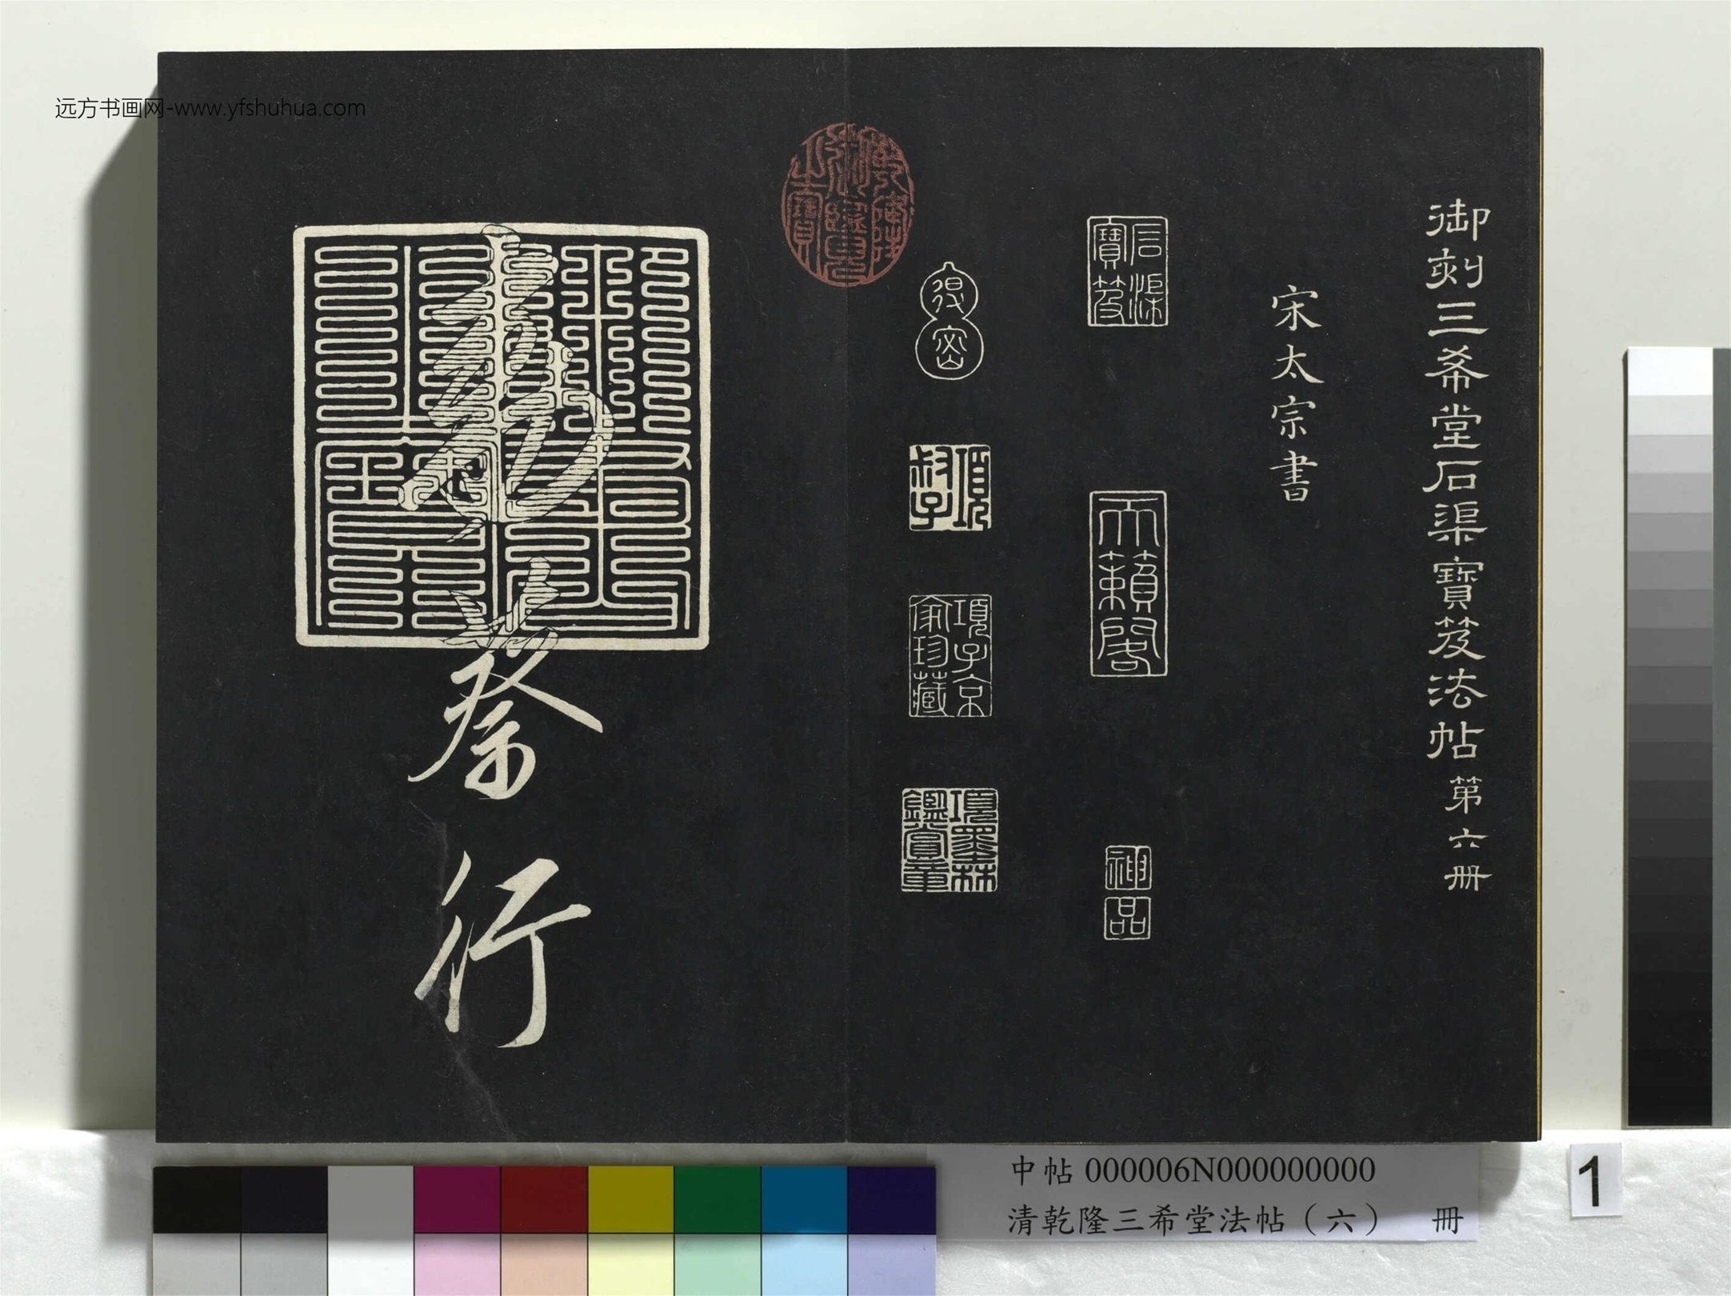 远方书画网-www.yfshuhua.com
御刻三希堂石渠寶笈法帖第六冊
宋太宗書
石渠寶笈
天籟閣
神品
乾隆御覽之寶
得密
項叔子
項子京家珍藏
項墨林鑑賞章
蔡行
中帖 000006N000000000
清乾隆三希堂法帖（六） 冊
1